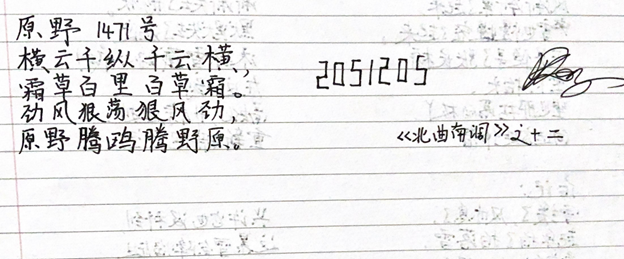 原野 1471号
横云千纵千云横,
霜草百里百草霜。
劲风狠荡狠风劲,
原野腾鸥腾野原。
2051205
《北曲南调》之十二